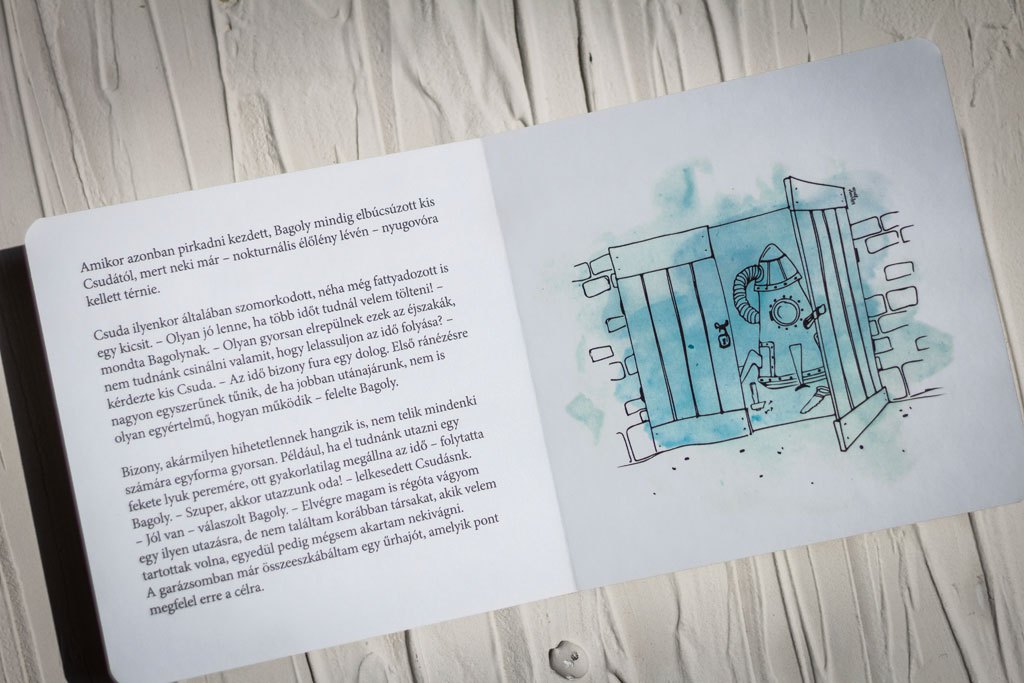 Amikor azonban pirkadni kezdett, Bagoly mindig elbúcsúzott kis
Csudától, mert neki már – nokturnális élőlény lévén – nyugovóra
kellett térnie.
Csuda ilyenkor általában szomorkodott, néha még fattyadozott is
egy kicsit. – Olyan jó lenne, ha több időt tudnál velem tölteni! –
mondta Bagolynak. – Olyan gyorsan elrepülnek ezek az éjszakák,
nem tudnánk csinálni valamit, hogy lelassuljon az idő folyása? –
kérdezte kis Csuda. – Az idő bizony fura egy dolog. Első ránézésre
nagyon egyszerűnek tűnik, de ha jobban utánajárunk, nem is
olyan egyértelmű, hogyan működik – felelte Bagoly.
Bizony, akármilyen hihetetlennek hangzik is, nem telik mindenki
számára egyforma gyorsan. Például, ha el tudnánk utazni egy
fekete lyuk peremére, ott gyakorlatilag megállna az idő – folytatta
Bagoly. – Szuper, akkor utazzunk oda! – lelkesedett Csudásnk.
– Jól van – válaszolt Bagoly. – Elvégre magam is régóta vágyom
egy ilyen utazásra, de nem találtam korábban társakat, akik velem
tartottak volna, egyedül pedig mégsem akartam nekivágni.
A garázsomban már összeeszkábáltam egy űrhajót, amelyik pont
megfelel erre a célra.